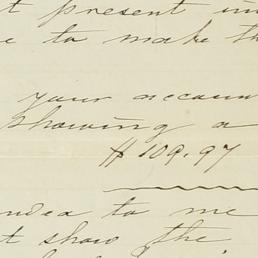 t present in
e to make th
your accoun
showing a
$109.97
nded to me
t show the